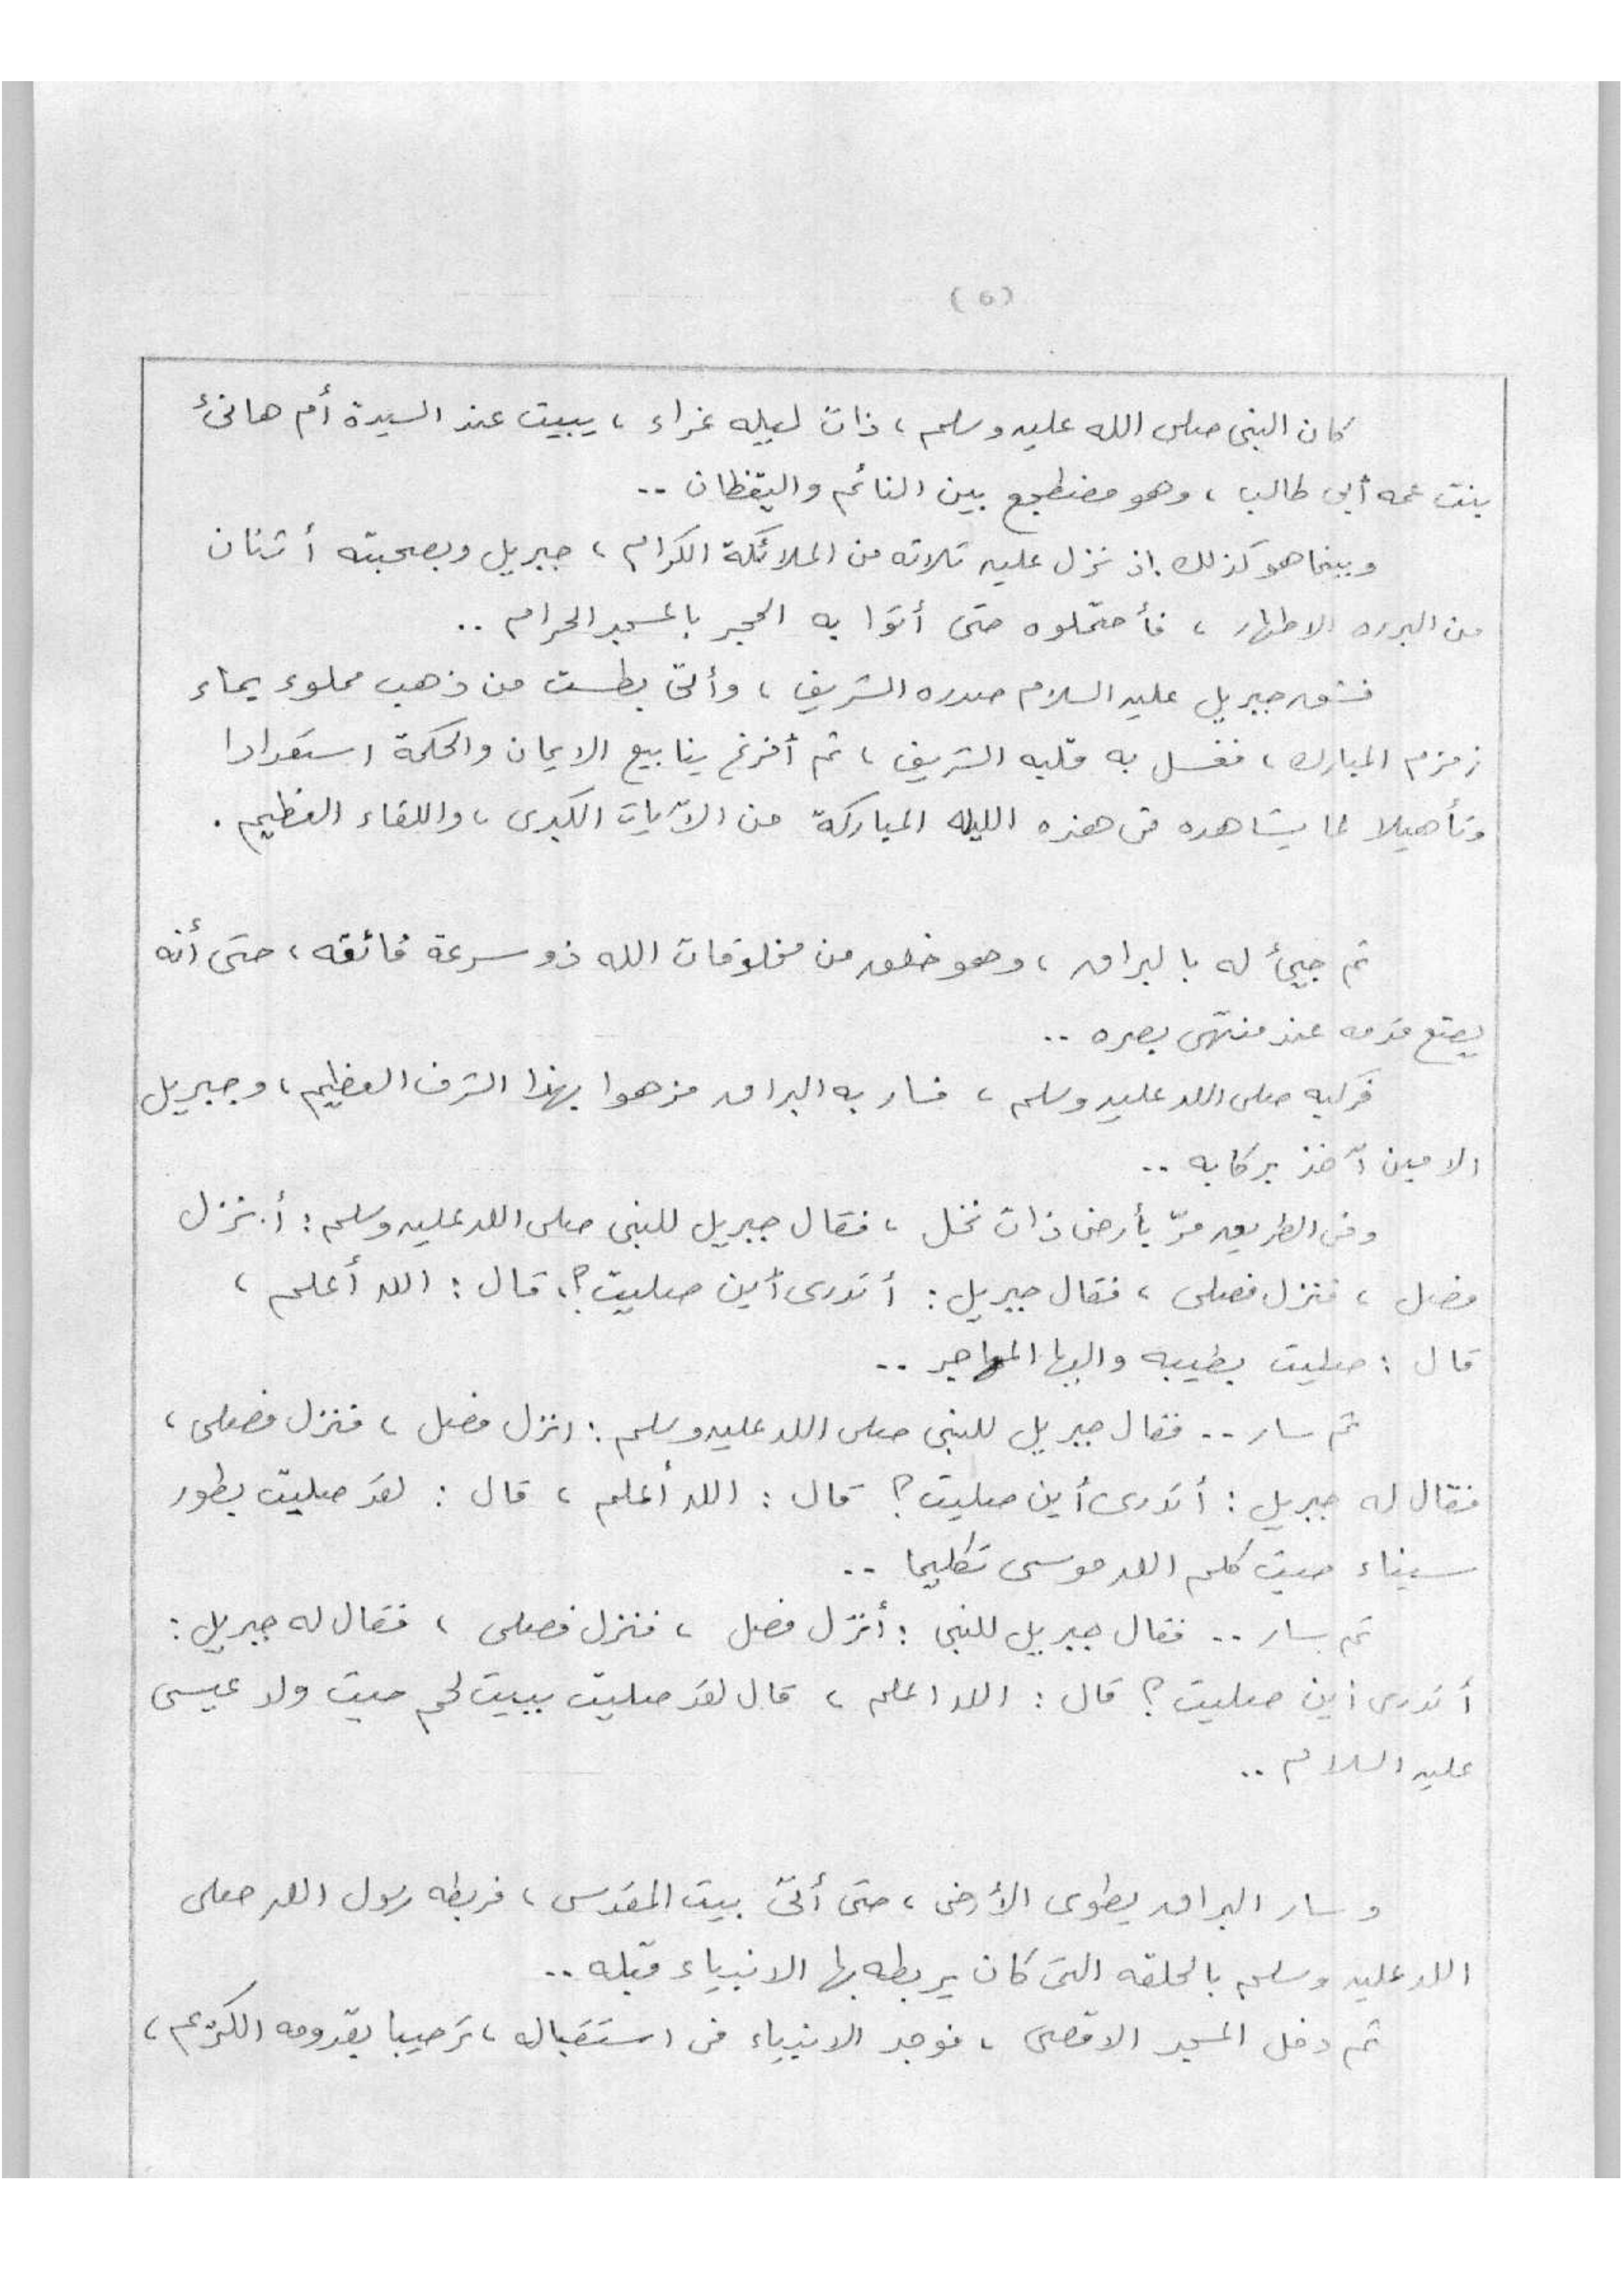 (٥)
كان النبى صلى الله عليه وسلم ، ذات ليله غراء ، يبيت عند السيدة أم هانئ
بنت عمه أبى طالب ، وهو مضطجع بين النائم واليقظان ..
وبينما هو كذلك إذ نزل عليه ثلاثه من الملائكة الكرام ، جبريل وبصحبته أثنان
من البرره الاطهار ، فأحتملوه حتى أتوا به الحجر بالمسجد الحرام ..
فشق جبريل عليه السلام صدره الشريف ، وأتى بطست من ذهب مملوء بماء
زمزم المبارك ، فغسل به قلبه الشريف ، ثم أفرغ ينابيع الايمان والحكمة استعدادا
وتأهيلا لما يشاهده فى هذه الليله المباركة من الآيات الكبرى ، واللقاء العظيم .
ثم جيئ له بالبراق ، وهو خلق من مخلوقات الله ذو سرعة فائقه ، حتى أنه
يضع قدمه عند منتهى بصره ..
فركبه صلى الله عليه وسلم ، فسار به البراق مزهوا بهذا الشرف العظيم ، وجبريل
الامين آخذ بركابه ..
وفى الطريق مرّ بأرض ذات نخل ، فقال جبريل للنبى صلى الله عليه وسلم : أنزل
فصل ، فنزل فصلى ، فقال جبريل : أتدرى أين صليت ؟ ، قال : الله أعلم ،
قال : صليت بطيبه واليها المهاجر ..
ثم سار .. فقال جبريل للنبى صلى الله عليه وسلم : انزل فصل ، فنزل فصلى ،
فقال له جبريل : أتدرى أين صليت ؟ قال : الله أعلم ، قال : لقد صليت بطور
سيناء حيث كلم الله موسى تكليما ..
ثم سار .. فقال جبريل للنبى : أنزل فصل ، فنزل فصلى ، فقال له جبريل :
أتدرى أين صليت ؟ قال : الله اعلم ، قال لقد صليت ببيت لحم حيث ولد عيسى
عليه السلام ..
وسار البراق يطوى الأرض ، حتى أتى بيت المقدس ، فربطه رسول الله صلى
الله عليه وسلم بالحلقه التى كان يربطه بها الانبياء قبله ..
ثم دخل المسجد الاقصى ، فوجد الانبياء فى استقباله ، ترحيبا بقدومه الكريم ،